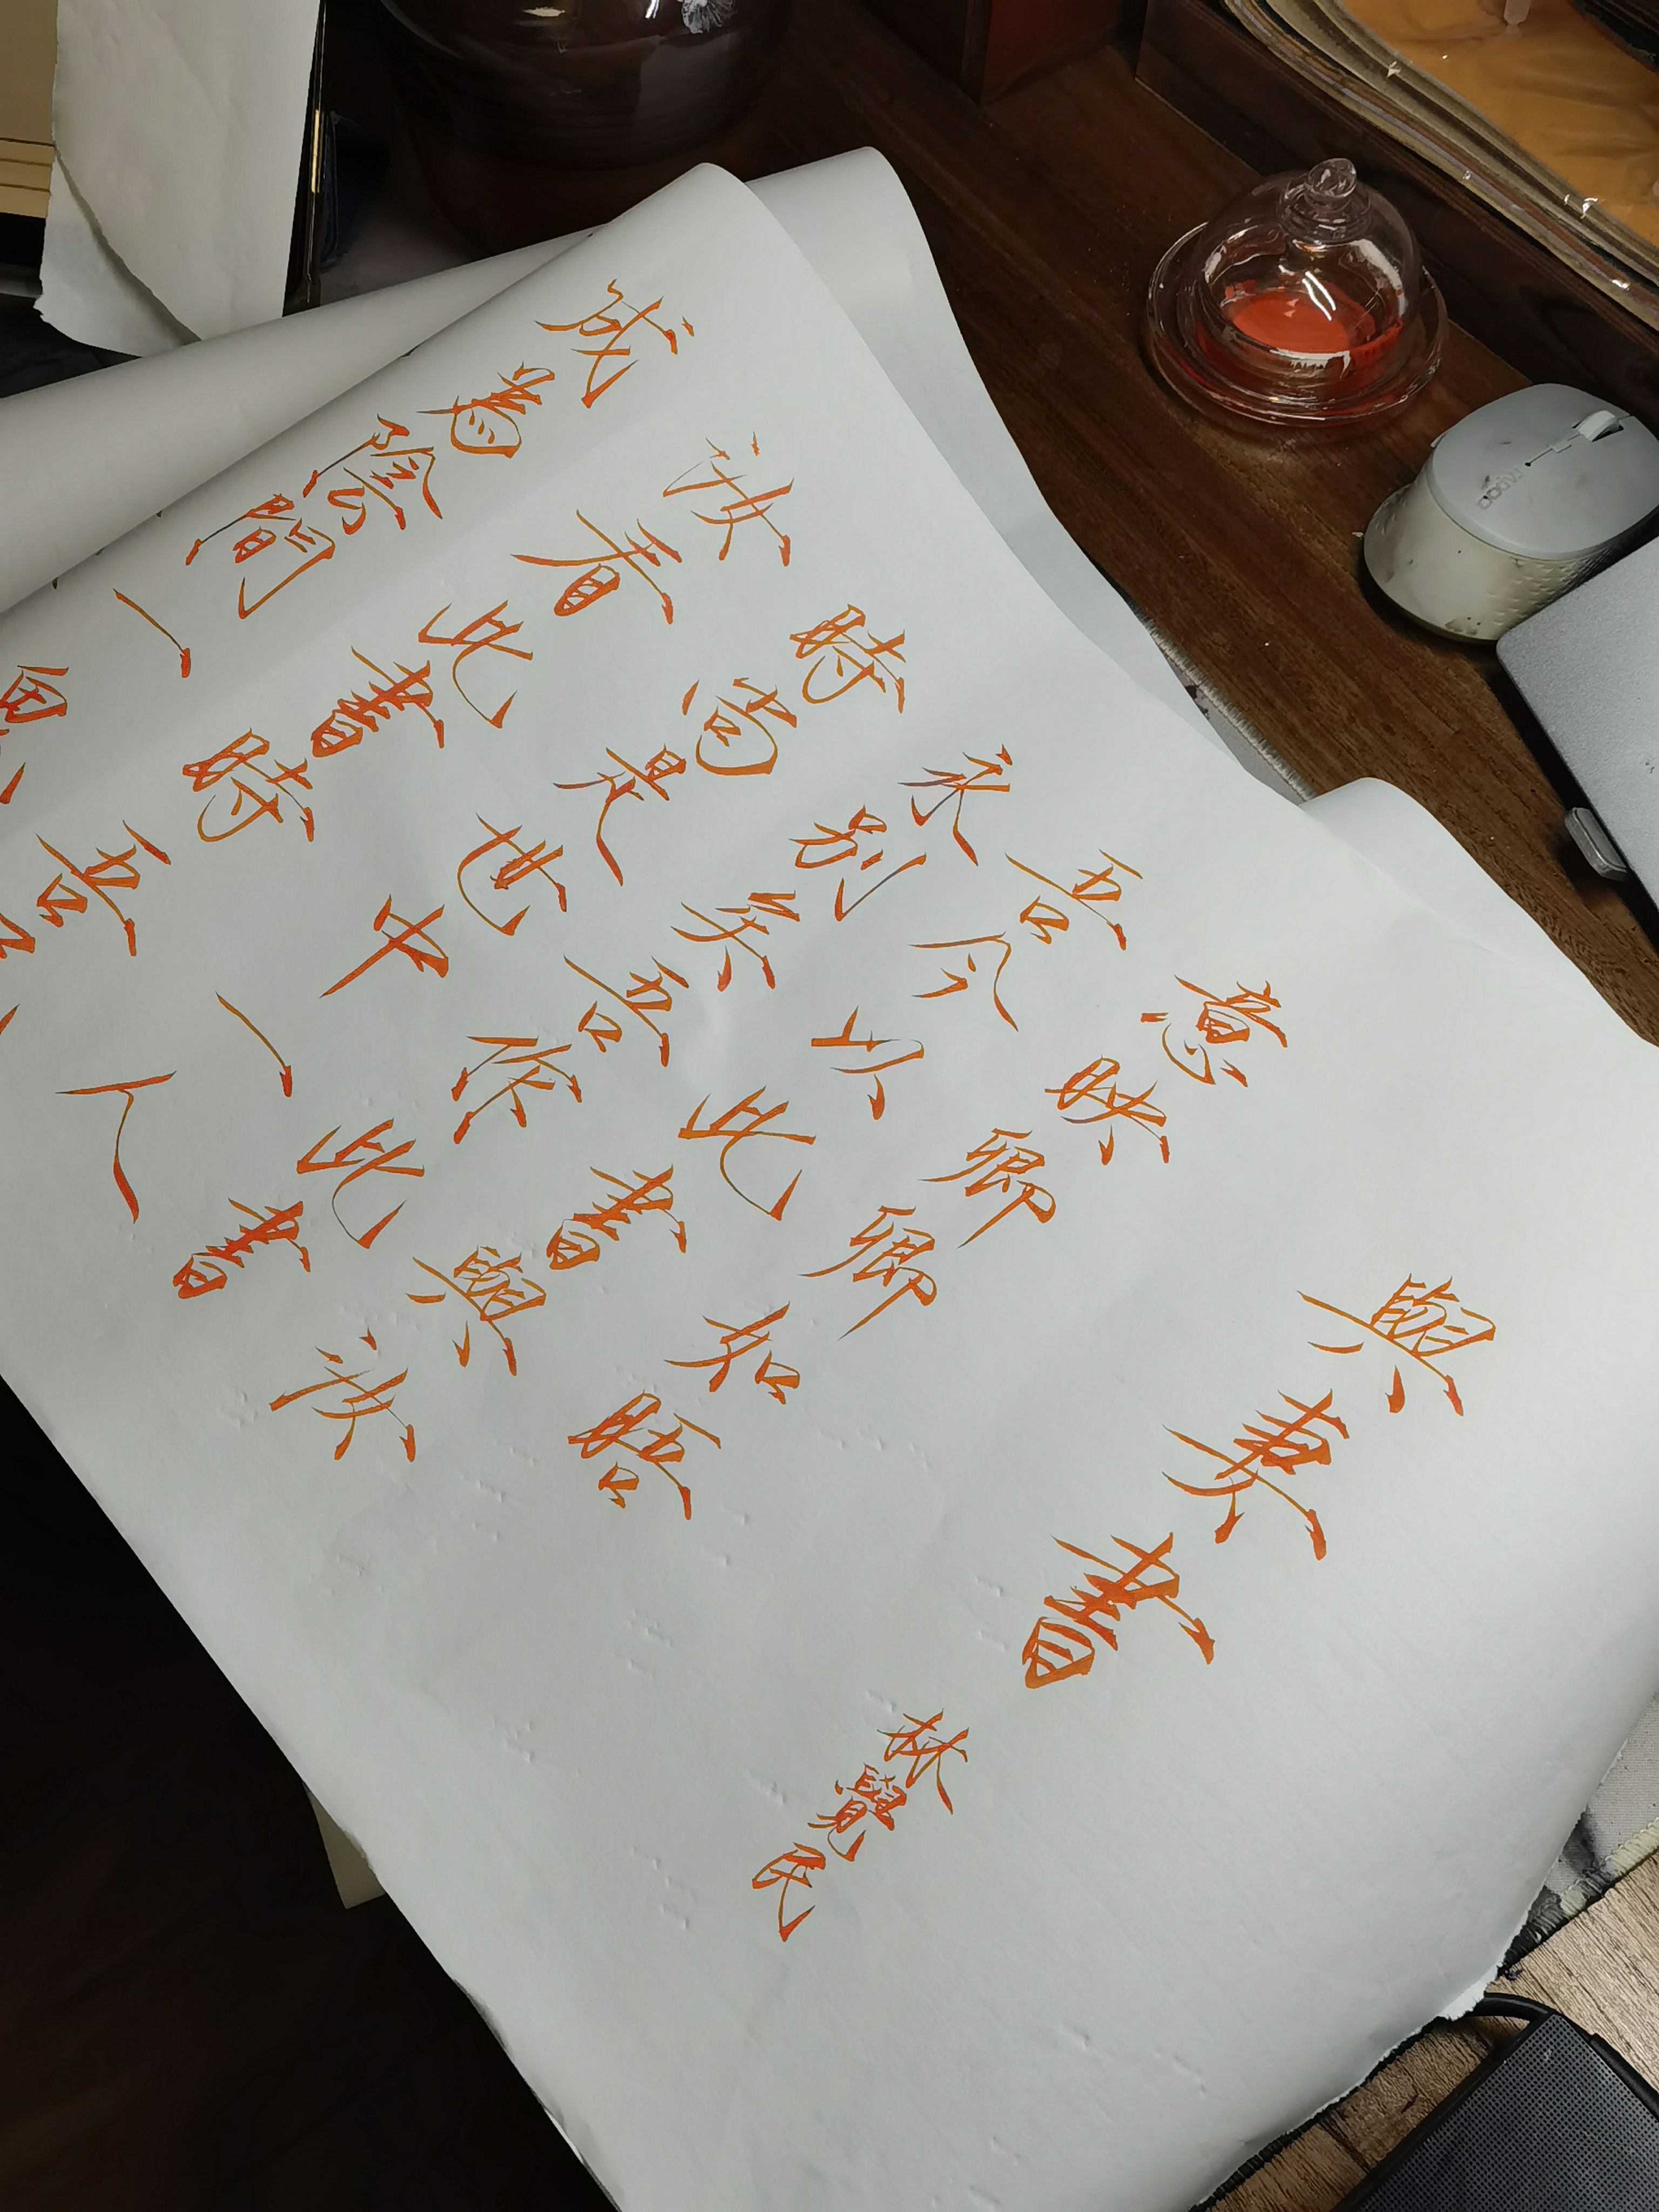 與妻書 林覺民
意映卿卿如晤
吾今以此書與汝
永別矣吾作此書
時尚是世中一人
汝看此書時吾
成為陰間一鬼